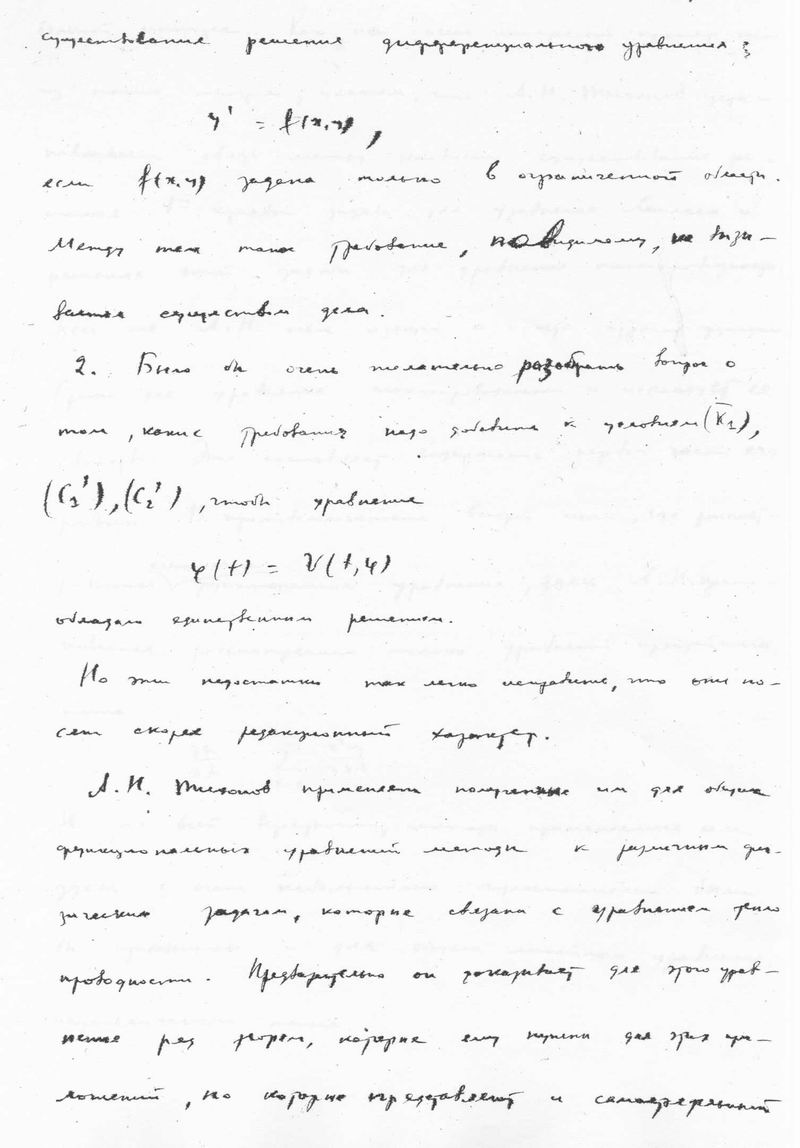 существование решения дифференциального уравнения
y' = f(x,y),
если f(x,y) задана только в ограниченной области.
Между тем такое требование, по видимому, не вызы-
вается существом дела.
2. Было бы очень желательно разобрать вопрос о
том, какие требования надо добавить к условиям (K̅₁),
(C₁'), (C₂'), чтобы уравнение
φ(t) = V(t,φ)
обладало единственным решением.
Но эти недостатки так легко исправить, что они но-
сят скорее редакционный характер.
А.Н. Тихонов применяет полученные им для общих
функциональных уравнений методы к различным фи-
зическим задачам, которые связаны с уравнением тепло
проводности. Предварительно он доказывает для этого урав-
нения ряд теорем, которые ему нужны для этих при-
ложений, но которые представляют и самостоятельный